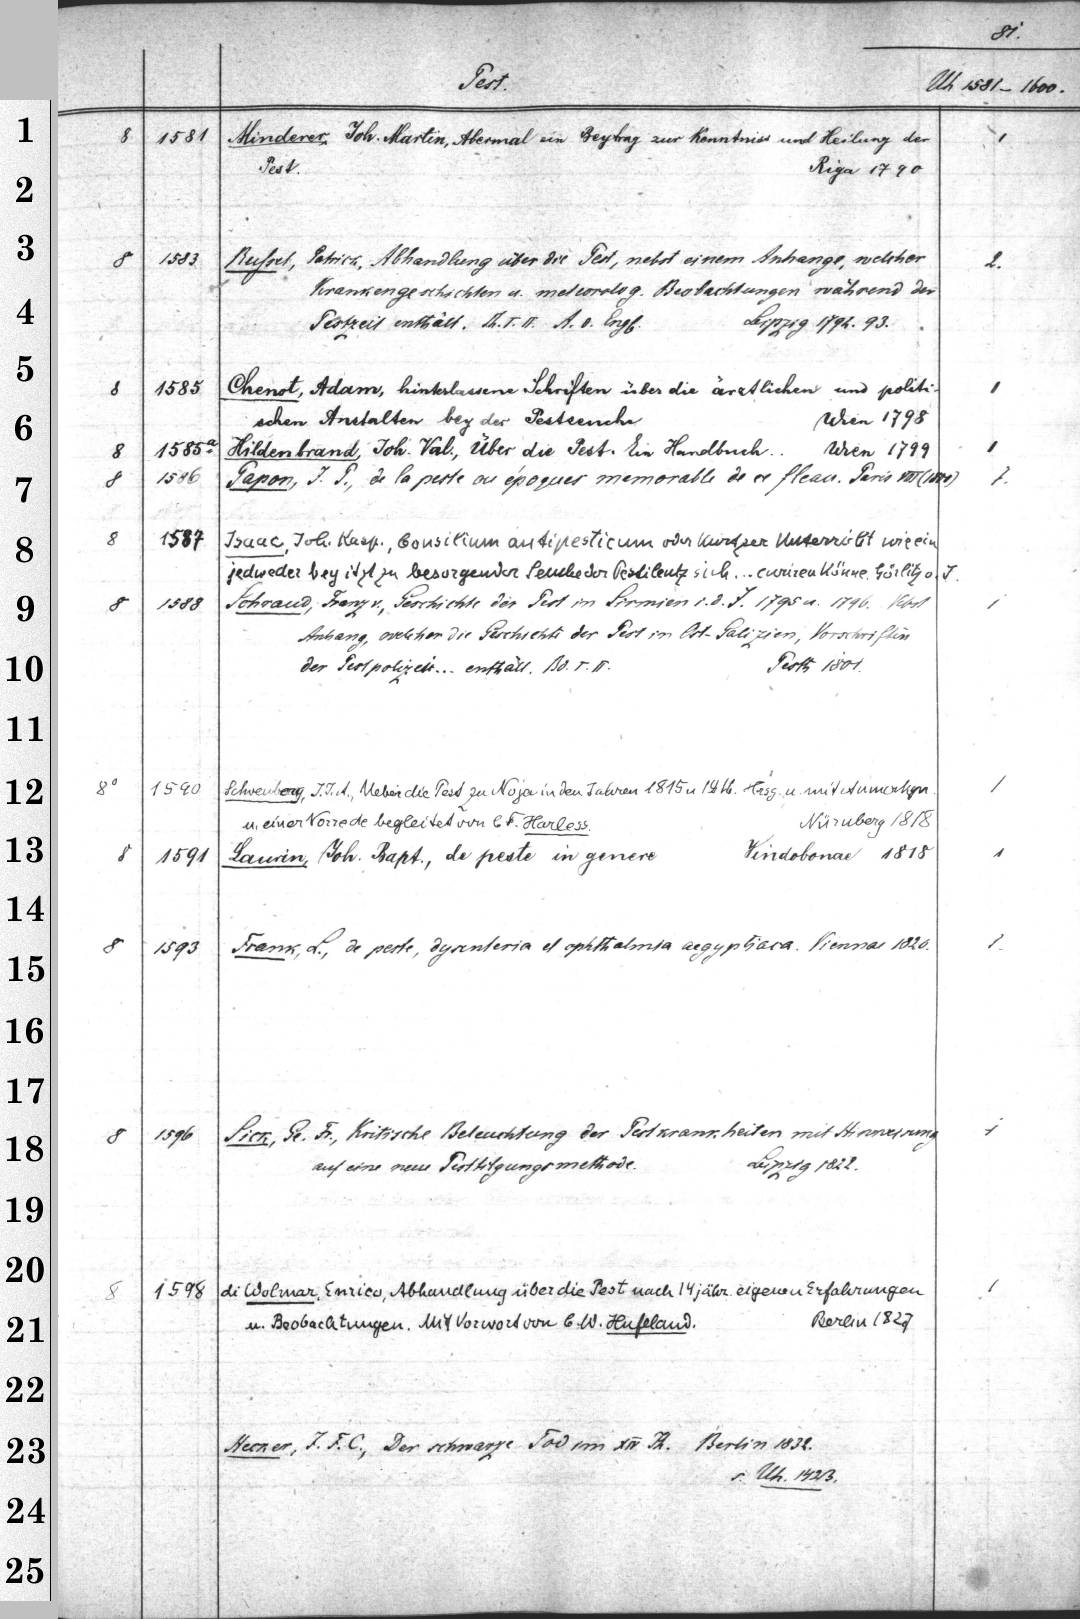 81.
Pest.
Uh 1581 – 1600.
1
8 1581 Minderer, Joh. Martin, Abermal ein Beytrag zur Kenntniss und Heilung der 1
Pest. Riga 1790
2
3
8 1583 Russel, Patrick, Abhandlung über die Pest, nebst einem Anhange, welcher 2.
Krankengeschichten u. meteorolog. Beobachtungen während der
4
Pestzeit enthält. Th. I. II. A. d. Engl. Leipzig 1792. 93.
5
8 1585 Chenot, Adam, hinterlassene Schriften über die ärztlichen und politi- 1
6
schen Anstalten bey der Pestseuche Wien 1798
8 1585a Hildenbrand, Joh. Val., Über die Pest. Ein Handbuch.. Wien 1799 1
7
8 1586 Papon, J. P., de la peste ou époques memorable de ce fleau. Paris VIII (1800)
8
8 1587 Isaac, Joh. Kasp., Consilium antipesticum oder Kurtzer Unterricht wie ein
jedweder bey itzt zu besorgender Seuche der Pestilentz sich... curiren könne. Görlitz o. J.
9
8 1588 Schraud, Franz v., Geschichte der Pest in Sirmien i. d. J. 1795 u. 1796. Nebst 1
Anhang, welcher die Geschichte der Pest in Ost-Galizien, Vorschriften
10
der Pestpolizei... enthält. Bd. I. II. Pesth 1801.
11
12
8° 1590 Schoenberg, J. J. A., Ueber die Pest zu Noja in den Jahren 1815 u 1816. Hrsg. u. mit Anmerkgn. 1
u. einer Vorrede begleitet von C F. Harless. Nürnberg 1818
13
8 1591 Laurin, Joh. Bapt., de peste in genere Vindobonae 1818 1
14
8 1593 Frank, L., de peste, dysenteria et ophthalmia aegyptiaca. Viennae 1820.
15
16
17
18
8 1596 Sick, Ge. Fr., Kritische Beleuchtung der Pestkrankheiten mit Hinweisung 1
auf eine neue Pesttilgungsmethode. Leipzig 1822.
19
20
8 1598 di Wolmar, Enrico, Abhandlung über die Pest nach 14 jähr. eigenen Erfahrungen 1
21
u. Beobachtungen. Mit Vorwort von C. W. Hufeland. Berlin 1827
22
23
Hecker, J. F. C., Der schwarze Tod im XIV Jh. Berlin 1832.
s. Uh. 1423.
24
25